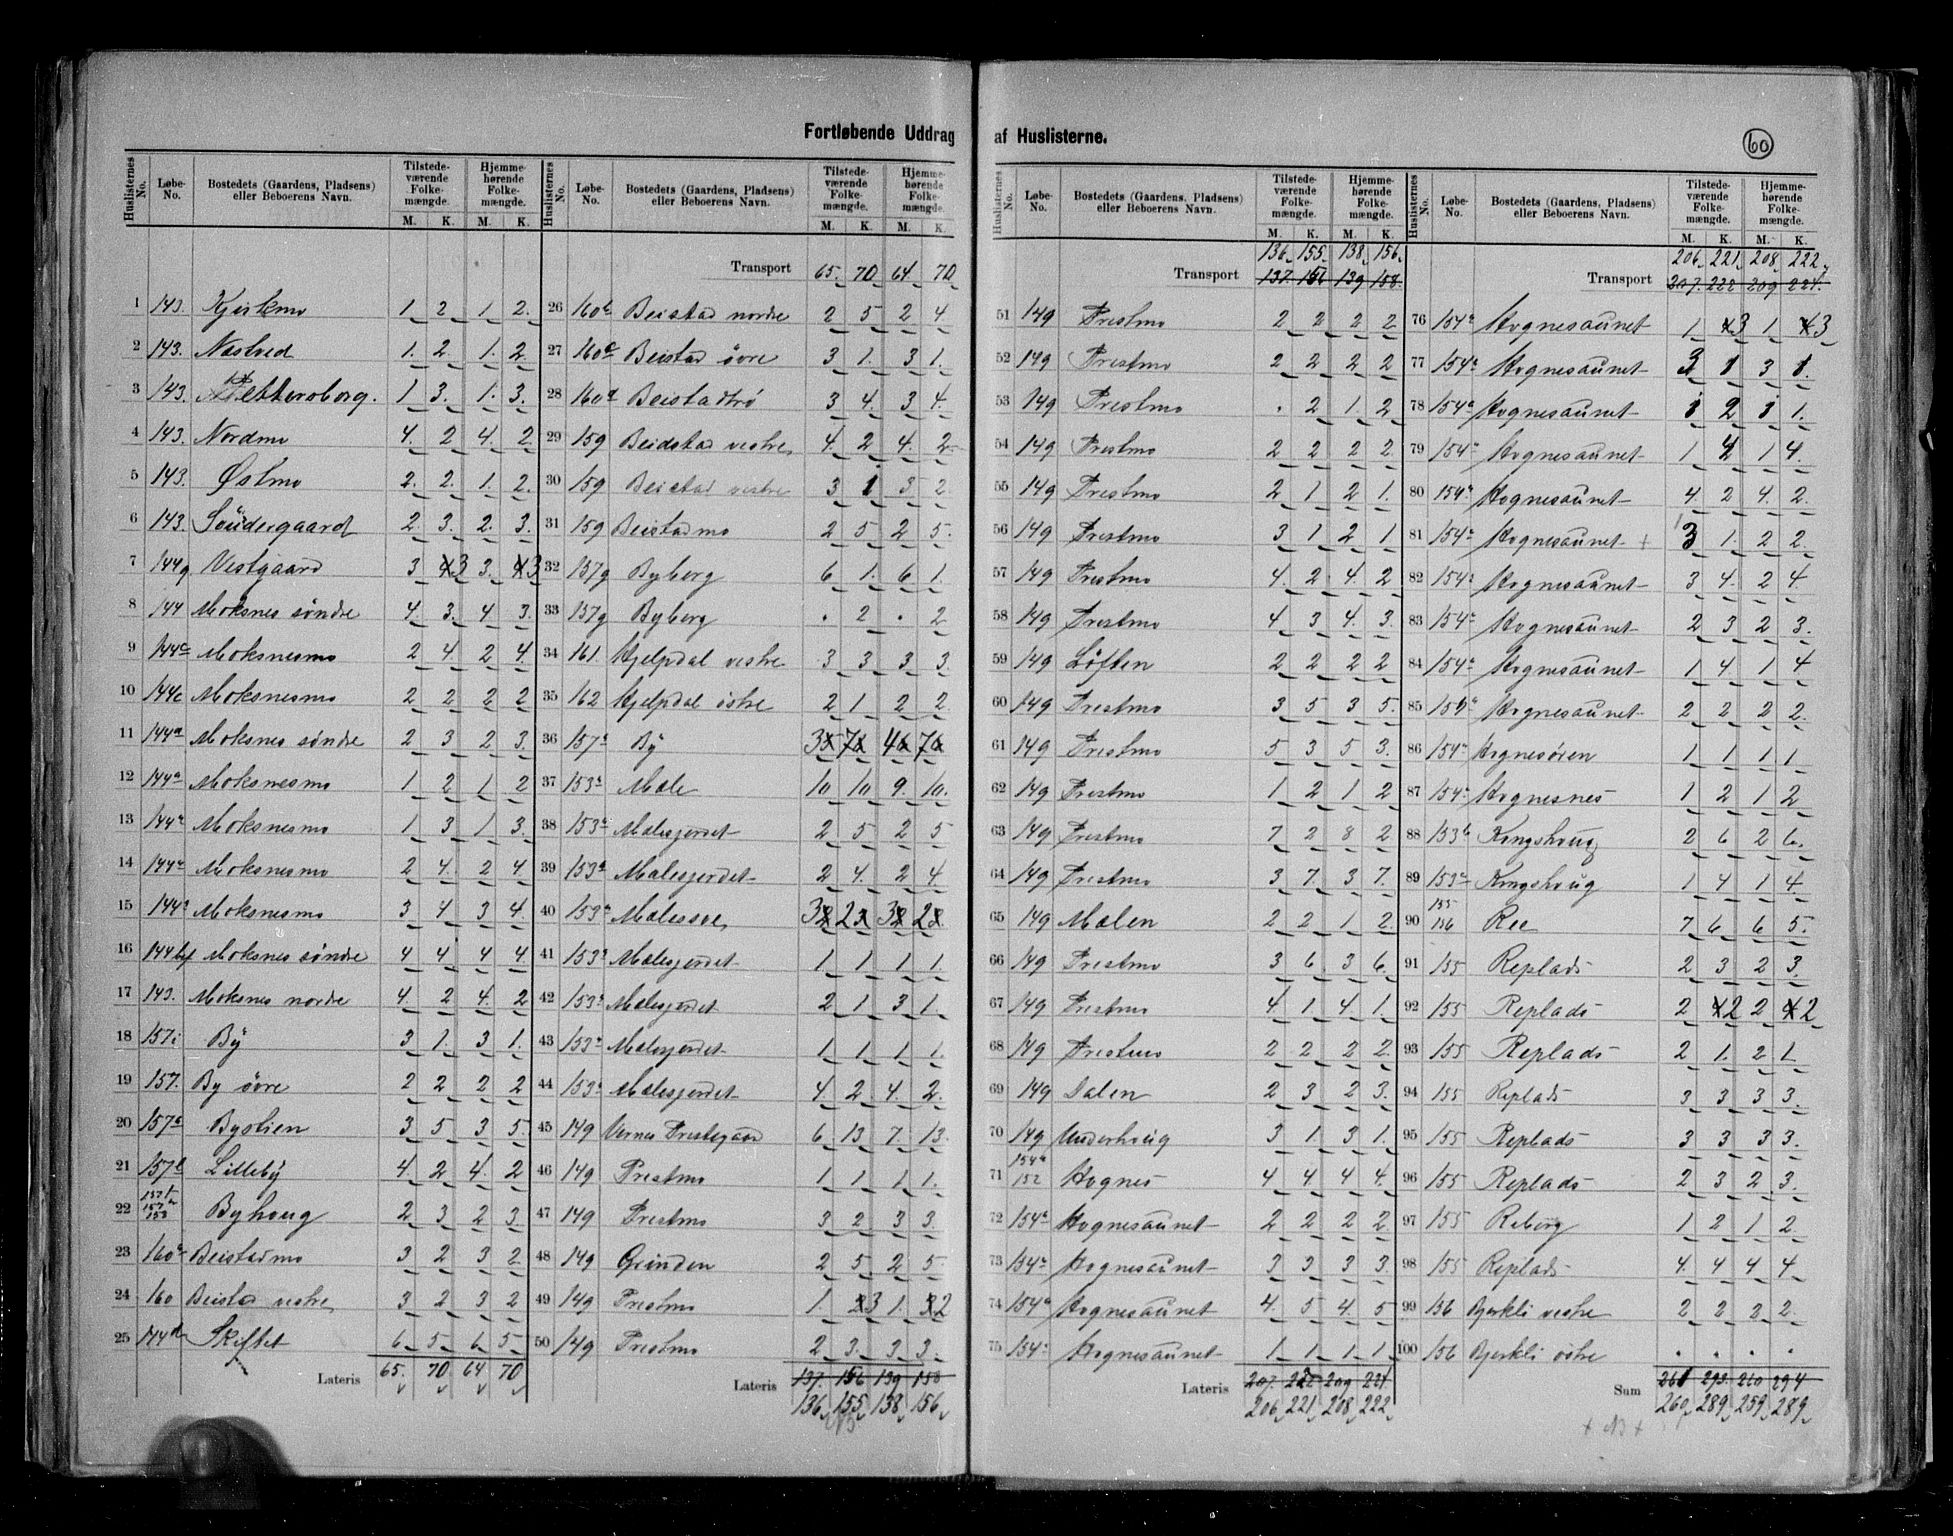 Fortløbende Uddrag af Huslisterne.
60
Huslisternes No. Løbe-No. Bostedets (Gaardens, Pladsens) eller Beboerens Navn. Tilstedeværende Folkemængde. M. K. Hjemmehørende Folkemængde. M. K.
1 143. Kjirkmo 1 2 1 2.
2 143. Nastved 1. 2 1. 2
3 143. Pettersborg. 1 3. 1. 3.
4 143. Nordmo 4. 2 4. 2
5 143. Østmo 2. 2. 1. 2.
6 143. Söndergaard 2. 3. 2. 3.
7 144g Vestgaard 3 3 3. 3
8 144 Moksnes søndre 4. 3. 4 3.
9 144c Moksnesmo 2 4 2 4.
10 144c Moksnesmo 2 2 2 2
11 144a Moksnes søndre 2 3 2 3.
12 144a Moksnesmo 1 2 1 2
13 144a Moksnesmo 1 3 1 3.
14 144a Moksnesmo 2 4. 2 4
15 144a Moksnesmo 3 4 3 4.
16 144bf Moksnes søndre 4 4 4 4.
17 143. Moksnes nordre 4. 2 4. 2
18 157i Bÿ 3 1. 3 1.
19 157. By övre 2 2 2 2
20 157a Bystien 3 5 3 5.
21 157l Lillebÿ 4 2 4. 2
22 158 Byhoug 2 3 2 3.
23 160a Beistadmo 3 2 3 2
24 160 Beistad vestre 3 2 3 2
25 144d Skiftet 6 5 6 5
Lateris 65. 70 64 70
Huslisternes No. Løbe-No. Bostedets (Gaardens, Pladsens) eller Beboerens Navn. Tilstedeværende Folkemængde. M. K. Hjemmehørende Folkemængde. M. K.
Transport 65. 70 64 70
26 160b Beistad nordre 2 5 2 4
27 160c Beistad övre 3 1. 3 1.
28 160d Beistadtrø 3 4. 3 4.
29 159 Beidstad vestre 4. 2 4. 2
30 159 Beistad vestre 3 1 3 2
31 159 Beistadmo 2 5 2 5.
32 157g Byberg 6 1. 6 1.
33 157g Byberg . 2 . 2
34 161. Hjelpdal vestre 3 3 3 3.
35 162 Hjelpdal östre 2 1 2 2.
36 157a Bÿ 3 7 4 7
37 153a Male 10 10 9. 10.
38 153a Malesjordet 2 5 2 5
39 153a Malesjordet 2 4. 2 4
40 153a 3 2 3 2
41 153a Malesjordet 1 1 1 1.
42 153a Malesjordet 2 1 3 1.
43 153a Malesjordet 1 1 1 1.
44 153a Malesjordet 4 2 4. 2.
45 149 Vernes Prestegaard 6 13 7. 13.
46 149 Prestmo 1 1 1 1.
47 149 Prestmo 3 2 3 3.
48 149 Grinden 2 5 2 5
49 149 Prestmo 1. 3 1. 2
50 149 Prestmo 2 3. 3 3.
Lateris 137. 156 139 158
136 155 138 156
Huslisternes No. Løbe-No. Bostedets (Gaardens, Pladsens) eller Beboerens Navn. Tilstedeværende Folkemængde. M. K. Hjemmehørende Folkemængde. M. K.
136 155 138 156
Transport 137. 156 139 158.
51 149 Prestmo 2 2 2 2.
52 149 Prestmo 2 2 2 2
53 149 Prestmo . 2 1. 2
54 149 Prestmo 2 2 2 2.
55 149 Prestmo 2 1 2 1.
56 149 Prestmo 3 1 2 1
57 149 Prestmo 4. 2 4. 2
58 149 Prestmo 4 3 4. 3.
59 149 Löften 2 2 2 2
60 149 Prestmo 3 5 3 5.
61 149 Prestmo 5 3 5 3.
62 149 Prestmo 1 2 1 2
63 149 Prestmo 7 2 8 2
64 149 Prestmo 3 7. 3 7.
65 149 Malen 2 2 1 2.
66 149 Prestmo 3 6 3 6.
67 149 Prestmo 4 1 4 1.
68 149 Prestmo 2 2 2 2.
69 149 Dalen 2 3 2 3.
70 149 Underhoug 3 1. 3 1.
71 154a 152 Hognes 4 4 4 4.
72 154a Hognesaunet 2 2 2 2
73 154a Hognesaunet 3 3 3 3.
74 154a Hognesaunet 4. 5 4. 5
75 154a Hognesaunet 1 1 1 1
Lateris 207. 222 209 224.
206 221 208 222
Huslisternes No. Løbe-No. Bostedets (Gaardens, Pladsens) eller Beboerens Navn. Tilstedeværende Folkemængde. M. K. Hjemmehørende Folkemængde. M. K.
206 221 208 222
Transport 207. 222 209 224.
76 154a Hognesaunet 1 3 1 3
77 154a Hognesaunet 3 1 3 1.
78 154a Hognesaunet 1 2 1 1.
79 154a Hognesaunet 1 4 1 4.
80 154a Hognesaunet 4. 2 4. 2.
81 154a Hognesaunet + 3 1. 2 2.
82 154a Hognesaunet 3 4. 2 4
83 154a Hognesaunet 2 3 2 3.
84 154a Hognesaunet 1 4 1 4
85 154a Hognesaunet 2 2 2 2.
86 154a Hognesören 1 1 1 1
87 154a Hognesnes 1 2 1 2
88 153b Kongshoug 2 6 2 6.
89 153a Kongshoug 1 4 1 4
90 155 156 Ree 7 6 6 5.
91 155 Replads 2 3 2 3.
92 155 Replads 2 2 2 2
93 155 Replads 2 1. 2 1
94 155 Replads 3 3 3 3.
95 155 Replads 3 3 3 3.
96 155 Replads 2 3 2 3.
97 155 Reberg 1 2 1 2
98 155 Replads 4. 4 4 4
99 156 Bjerkli vestre 2 2 2 2.
100 156 Bjerkli östre . . . .
Sum 261 293 260 294
260 289 259 289
+ NB +